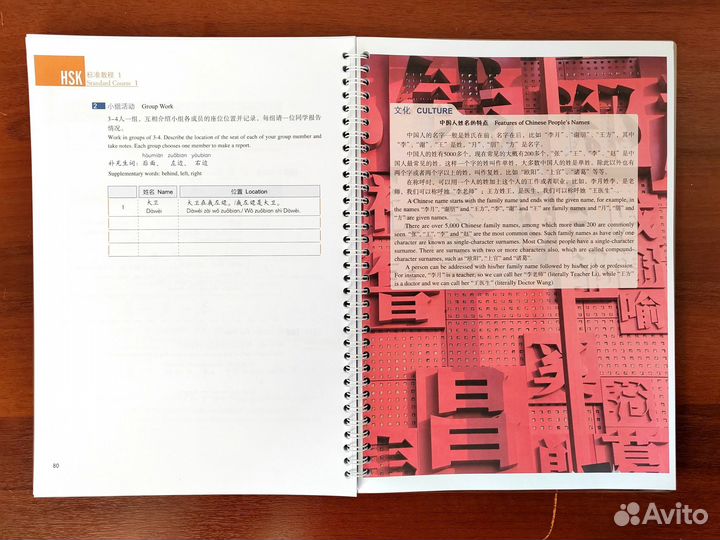 HSK 标准教程 1
Standard Course 1
2 小组活动 Group Work
3-4人一组，互相介绍小组各成员的座位位置并记录，每组请一位同学报告
情况。
Work in groups of 3-4. Describe the location of the seat of each of your group member and
take notes. Each group chooses one member to make a report.
hòumiàn zuǒbian yòubian
补充生词：后面、 左边、 右边
Supplementary words: behind, left, right
姓名 Name 位置 Location
1 大卫 大卫在我左边。/我左边是大卫。
Dàwèi Dàwèi zài wǒ zuǒbian./ Wǒ zuǒbian shì Dàwèi.
80
文化 CULTURE
中国人姓名的特点 Features of Chinese People's Names
中国人的名字一般是姓氏在前，名字在后，比如“李月”、“谢朋”、“王方”，其中
“李”、“谢”、“王”是姓，“月”、“朋”、“方”是名字。
中国人的姓有5000多个，现在常见的大概有200多个，“张”、“王”、“李”、“赵”是中
国人最常见的姓，这样一个字的姓叫作单姓，大多数中国人的姓是单姓。除此以外也有
两个字或者两个字以上的姓，叫作复姓，比如“欧阳”、“上官”、“诸葛”等等。
在称呼时，可以用一个人的姓加上这个人的工作或者职业。比如，李月姓李，是老
师，我们可以称呼她“李老师”；王方姓王，是医生，我们可以称呼她“王医生”。
A Chinese name starts with the family name and ends with the given name, for example, in
the names “李月”, “谢朋” and “王方”, “李”, “谢” and “王” are family names and “月”, “朋” and
“方” are given names.
There are over 5,000 Chinese family names, among which more than 200 are commonly
seen. “张”, “王”, “李” and “赵” are the most common ones. Such family names as have only one
character are known as single-character surnames. Most Chinese people have a single-character
surname. There are surnames with two or more characters also, which are called compound-
character surnames, such as “欧阳”, “上官” and “诸葛”.
A person can be addressed with his/her family name followed by his/her job or profession.
For instance, “李月” is a teacher; so we can call her “李老师” (literally Teacher Li), while “王方”
is a doctor and we can call her “王医生” (literally Doctor Wang)
昌
喻
范
Avito